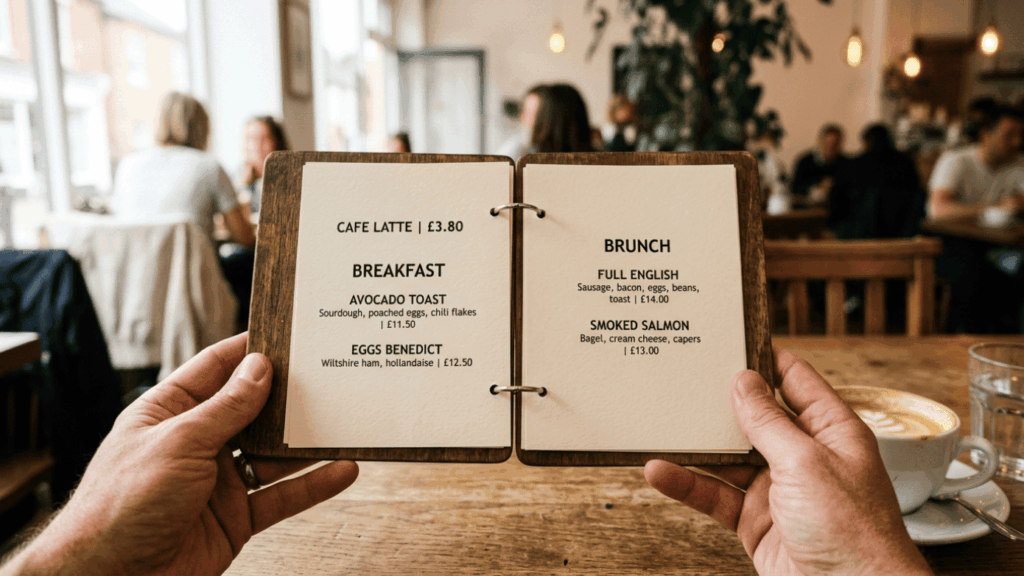 CAFE LATTE | £3.80
BREAKFAST
AVOCADO TOAST
Sourdough, poached eggs, chili flakes
| £11.50
EGGS BENEDICT
Wiltshire ham, hollandaise | £12.50
BRUNCH
FULL ENGLISH
Sausage, bacon, eggs, beans,
toast | £14.00
SMOKED SALMON
Bagel, cream cheese, capers
| £13.00